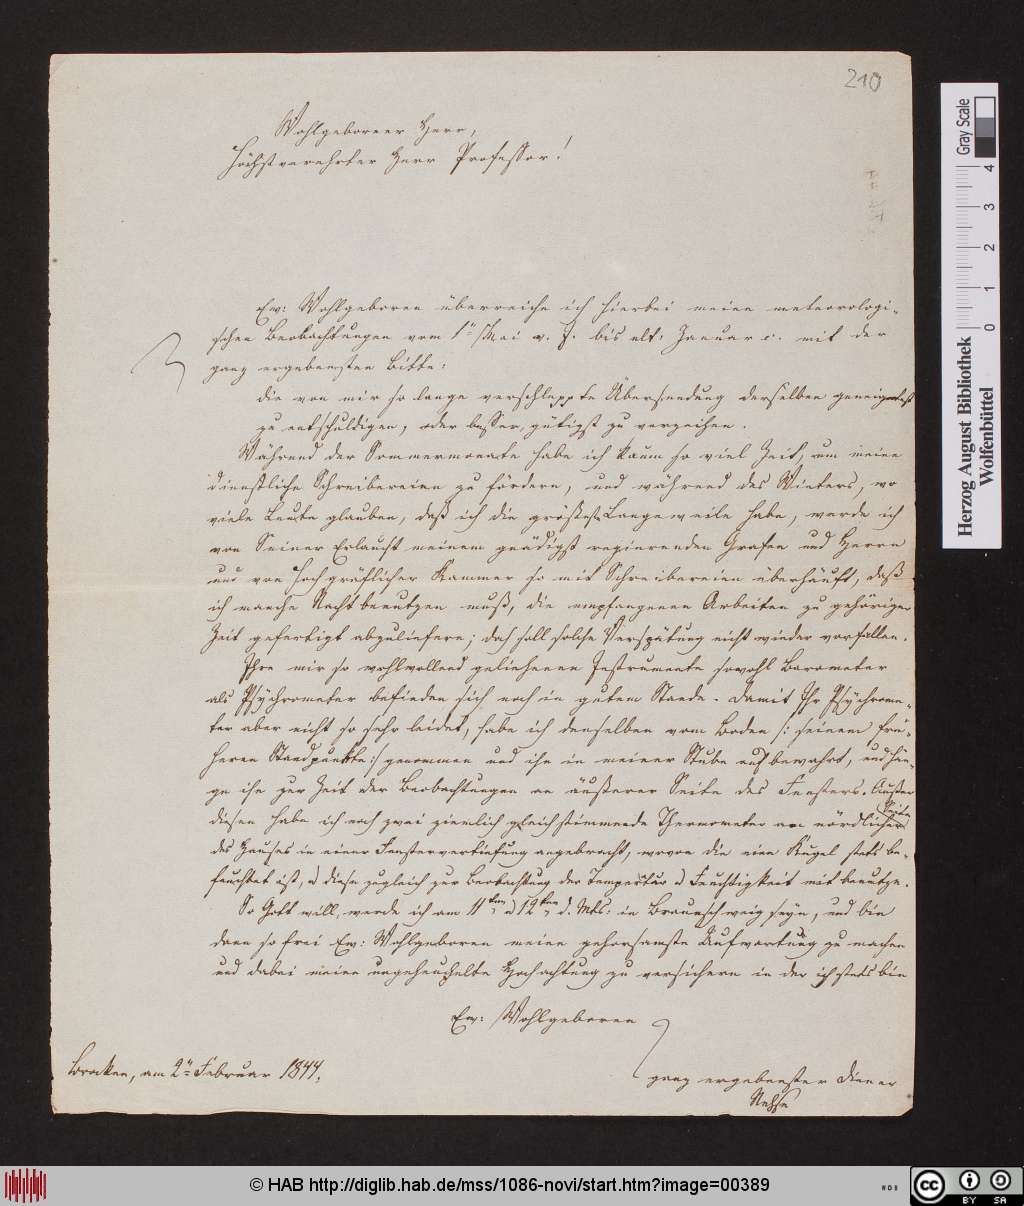 210
Wohlgeborner Herr,
Höchstverehrter Herr Professor!
Ew: Wohlgeboren überreiche ich hierbei meine meteorologi-
schen Beobachtungen vom 1n Mai v. J. bis ult: Januar c. mit der
ganz ergebensten Bitte:
die von mir so lange verschleppte Übersendung derselben geneigtest
zu entschuldigen, oder besser, gütigst zu verzeihen.
Während der Sommermonate habe ich kaum so viel Zeit, um meine
dienstliche Schreibereien zu fördern, und während des Winters, wo
viele Leute glauben, daß ich die größeste Langeweile habe, werde ich
von Seiner Erlaucht meinem gnädigst regierenden Grafen und Herrn
und von Hochgräflicher Kammer so mit Schreibereien überhäuft, daß
ich manche Nacht benutzen muß, die empfangenen Arbeiten zu gehöriger
Zeit gefertigt abzuliefern; doch soll solche Verspätung nicht wieder vorfallen.
Ihre mir so wohlwollend geliehenen Instrumente sowohl Barometer
als Psychrometer befinden sich noch in gutem Stande. Damit Ihr Psychrome-
ter aber nicht so sehr leidet, habe ich denselben vom Boden /: seinem frü-
heren Standpunkte :/ genommen und ihn in meiner Stube aufbewahrt, und hän-
ge ihn zur Zeit der Beobachtungen an äußerer Seite des Fensters. Außer
diesen habe ich noch zwei ziemlich gleichstimmende Thermometer an nördlicher Seite
des Hauses in einer Fenstervertiefung angebracht, wovon die eine Kugel stets be-
feuchtet ist, u diese zugleich zur Beobachtung der Temperatur u Feuchtigkeit mit benutze.
So Gott will, werde ich am 11ten u 12ten d. Mts: in Braunschweig seyn, und bin
dann so frei Ew: Wohlgeboren meine gehorsamste Aufwartung zu machen
und dabei meine ungeheuchelte Hochachtung zu versichern in der ich stets bin
Ew: Wohlgeboren
ganz ergebenster Diener
Nehse
Brocken, am 2n Februar 1844.
Gray Scale
0 1 2 3 4
Herzog August Bibliothek
Wolfenbüttel
© HAB http://diglib.hab.de/mss/1086-novi/start.htm?image=00389
WDB
cc BY SA